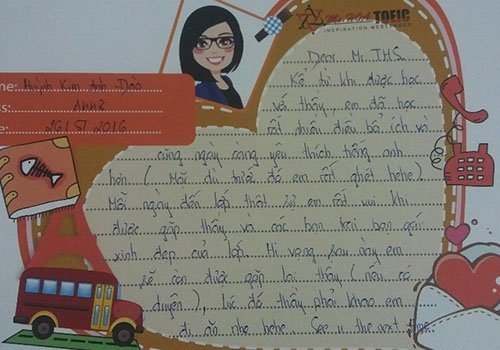 Ms HOA TOEIC
INSPIRATION MESSENGER
me: Huỳnh Kim Anh Đào
ss: AHH2
e: 26/5/2016
Dear Mr. THS
Kể từ khi được học
với thầy, em đã học
rất nhiều điều bổ ích và
cũng ngày càng yêu thích tiếng anh
hơn (Mặc dù trước đó em rất ghét hehe)
Mỗi ngày đến lớp thật sự em rất vui khi
được gặp thầy và các bạn trai bạn gái
xinh đẹp của lớp. Hi vọng sau này em
sẽ còn được gặp lại thầy (nếu có
duyên), lúc đó thầy phải khao em
đi ăn nhe hehe. See u the next time